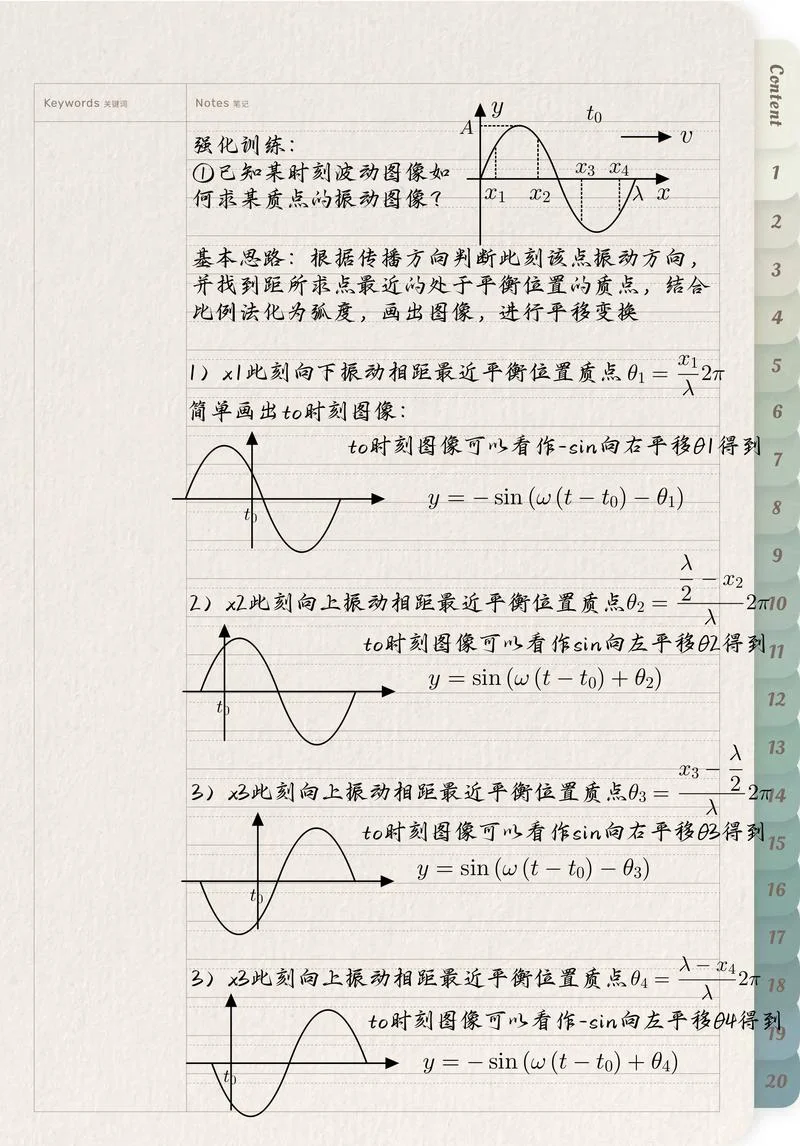 Content
Keywords 关键词
Notes 笔记
y
A
t₀
v
x₁
x₂
x₃
x₄
λ
x
强化训练：
①已知某时刻波动图像如
何求某质点的振动图像？
基本思路：根据传播方向判断此刻该点振动方向，
并找到距所求点最近的处于平衡位置的质点，结合
比例法化为弧度，画出图像，进行平移变换
1）x1此刻向下振动相距最近平衡位置质点 θ₁ = x₁/λ 2π
简单画出to时刻图像：
to时刻图像可以看作-sin向右平移θ1得到
y = − sin (ω (t − t₀) − θ₁)
t₀
2）x2此刻向上振动相距最近平衡位置质点θ₂ = (λ/2 − x₂)/λ 2π
to时刻图像可以看作sin向左平移θ2得到
y = sin (ω (t − t₀) + θ₂)
t₀
3）x3此刻向上振动相距最近平衡位置质点θ₃ = (x₃ − λ/2)/λ 2π
to时刻图像可以看作sin向右平移θ3得到
y = sin (ω (t − t₀) − θ₃)
t₀
3）x3此刻向上振动相距最近平衡位置质点θ₄ = (λ − x₄)/λ 2π
to时刻图像可以看作-sin向左平移θ4得到
y = − sin (ω (t − t₀) + θ₄)
t₀
1
2
3
4
5
6
7
8
9
10
11
12
13
14
15
16
17
18
19
20